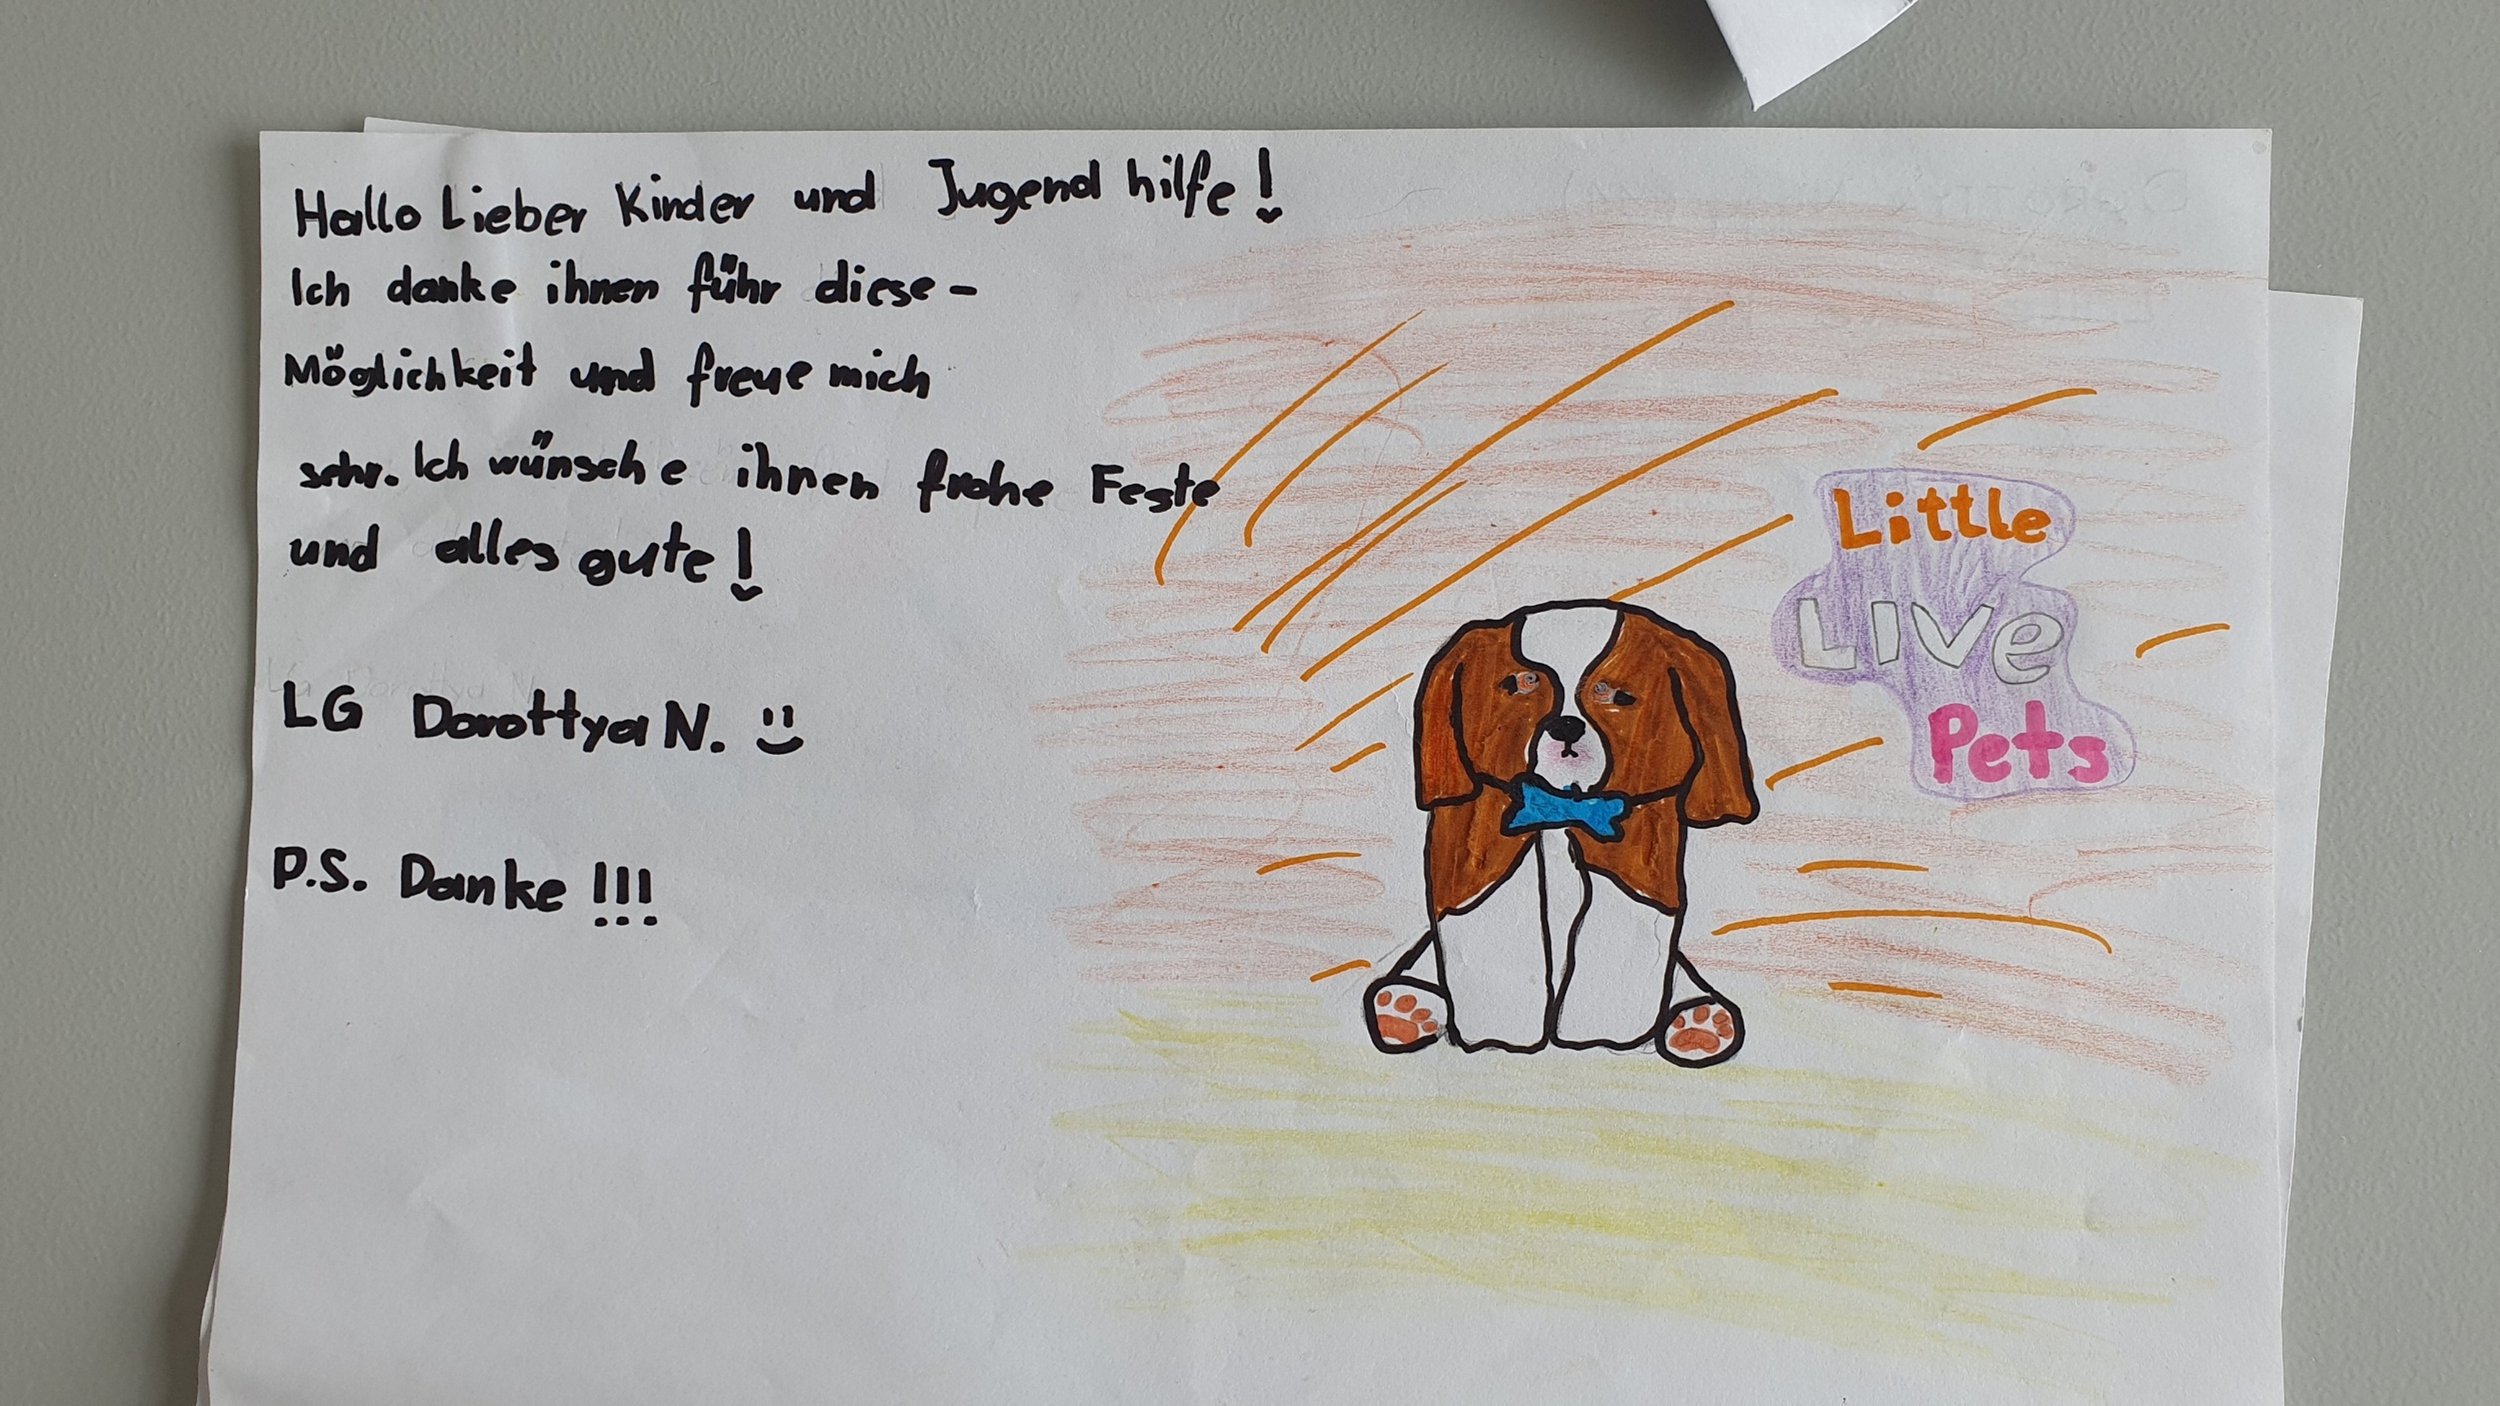 Hallo Lieber Kinder und Jugend hilfe!
Ich danke ihnen führ diese-
Möglichkeit und freue mich
sehr. Ich wünsche ihnen frohe Feste
und alles gute!
LG Dorottya N. :)
P.S. Danke !!!
Little
LIVe
Pets